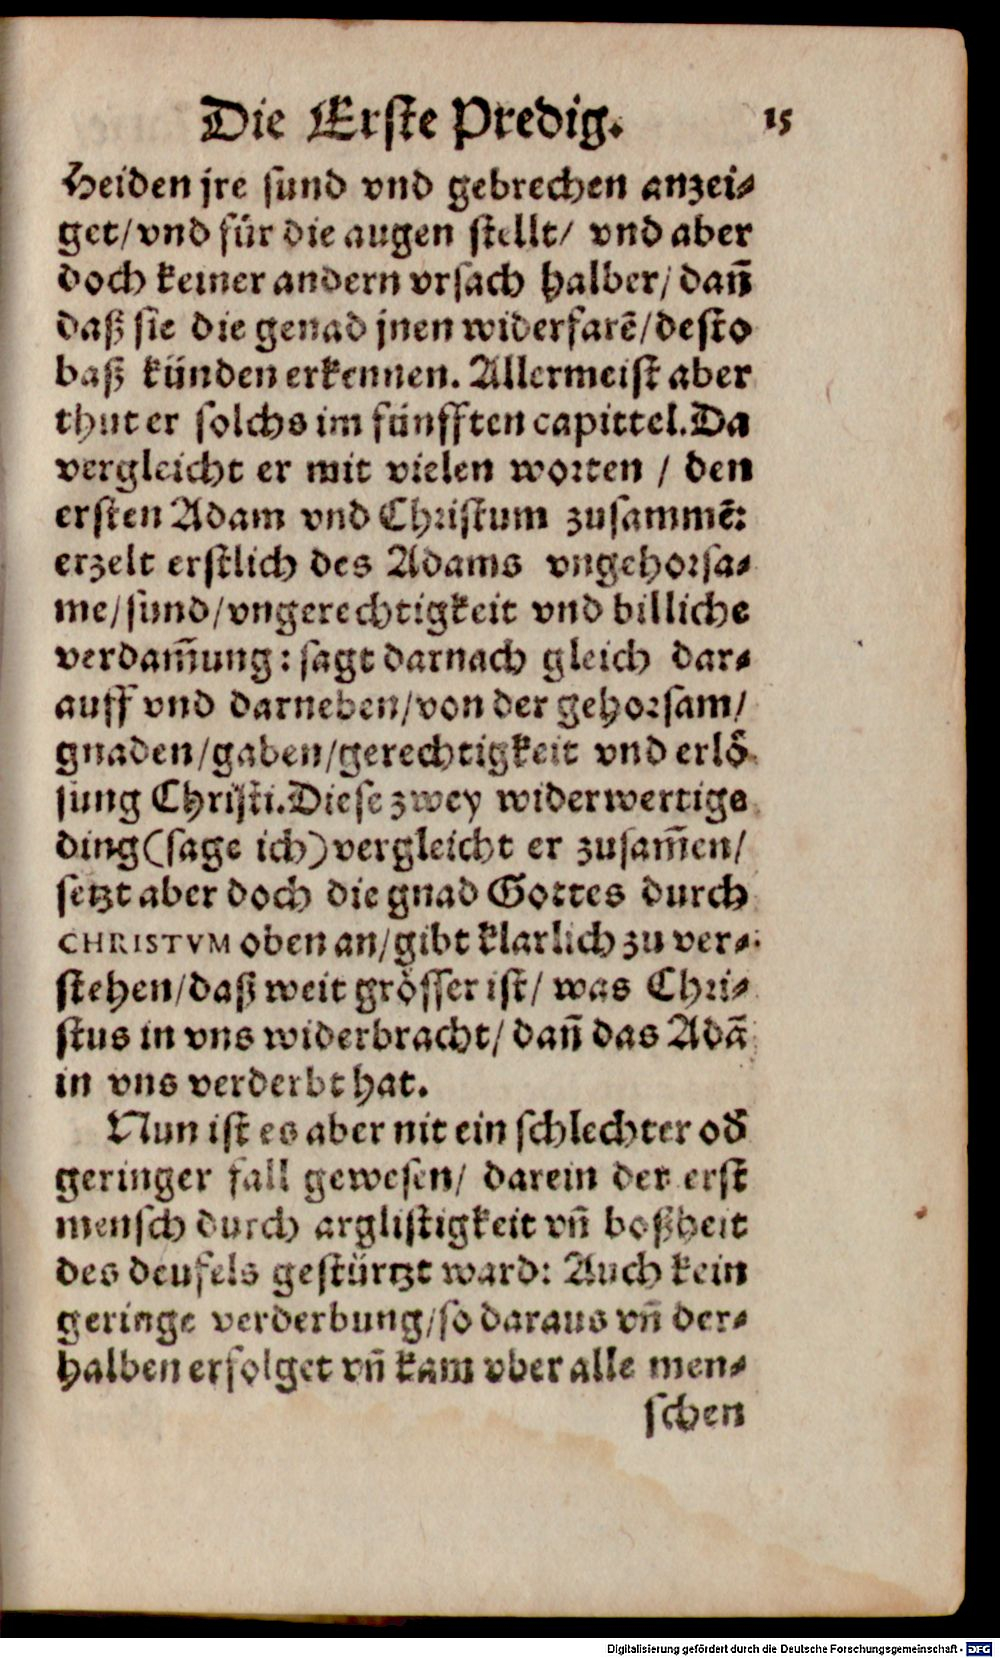 Die Erste Predig. 15
Heiden jre sund vnd gebrechen anzei⸗
get/vnd für die augen stellt/ vnd aber
doch keiner andern vrsach halber/ dañ
daß sie die genad jnen widerfarē/desto
baß künden erkennen. Allermeist aber
thut er solchs im fünfften capittel.Da
vergleicht er mit vielen worten / den
ersten Adam vnd Christum zusammē:
erzelt erstlich des Adams vngehorsa⸗
me/sund/vngerechtigkeit vnd billiche
verdam̃ung: sagt darnach gleich dar⸗
auff vnd darneben/von der gehorsam/
gnaden/gaben/gerechtigkeit vnd erlö⸗
sung Christi.Diese zwey widerwertige
ding(sage ich)vergleicht er zusam̃en/
setzt aber doch die gnad Gottes durch
CHRISTVM oben an/gibt klarlich zu ver⸗
stehen/daß weit grösser ist/ was Chri⸗
stus in vns widerbracht/ dañ das Adā
in vns verderbt hat.
Nun ist es aber nit ein schlechter od̃
geringer fall gewesen/ darein der erst
mensch durch arglistigkeit vñ boßheit
des deufels gestürtzt ward: Auch kein
geringe verderbung/so daraus vñ der⸗
halben erfolget vñ kam vber alle men⸗
schen
Digitalisierung gefördert durch die Deutsche Forschungsgemeinschaft - DFG